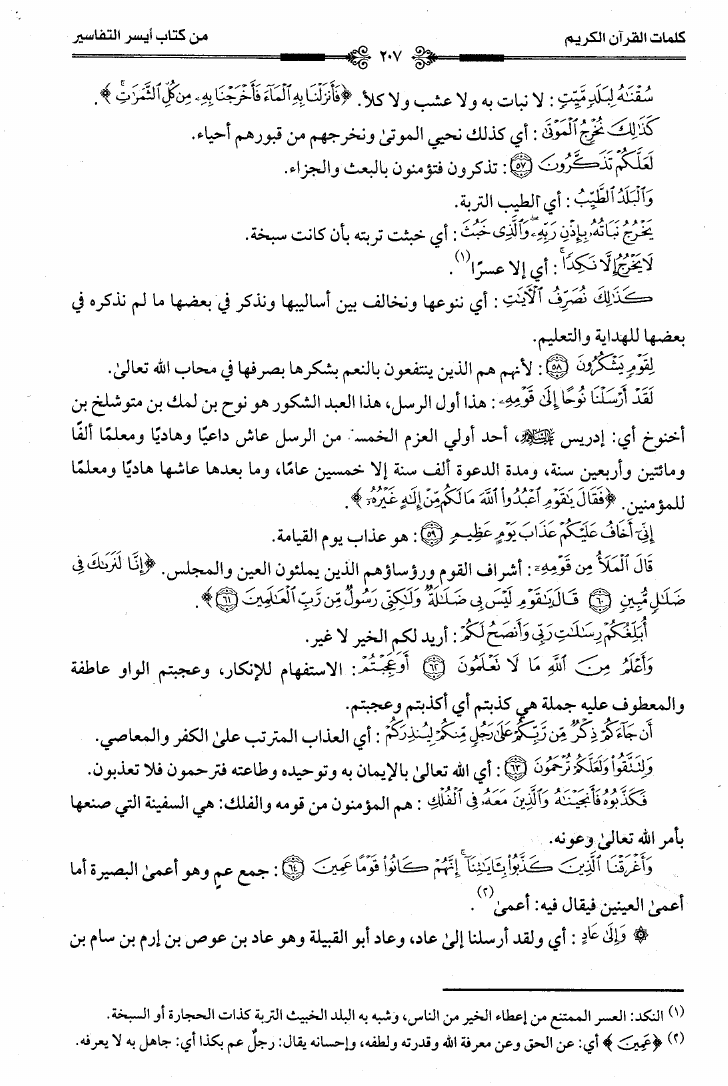 كلمات القرآن الكريم
من كتاب أيسر التفاسير
٢٠٧
سُقْنَاهُ لِبَلَدٍ مَّيِّتٍ : لا نبات به ولا عشب ولا كلأ. ﴿فَأَنزَلْنَا بِهِ الْمَاءَ فَأَخْرَجْنَا بِهِ مِن كُلِّ الثَّمَرَاتِ﴾.
كَذَٰلِكَ نُخْرِجُ الْمَوْتَىٰ : أي كذلك نحيي الموتىٰ ونخرجهم من قبورهم أحياء.
لَعَلَّكُمْ تَذَكَّرُونَ ٥٧ : تذكرون فتؤمنون بالبعث والجزاء.
وَالْبَلَدُ الطَّيِّبُ : أي الطيب التربة.
يَخْرُجُ نَبَاتُهُ بِإِذْنِ رَبِّهِ ۖ وَالَّذِي خَبُثَ : أي خبثت تربته بأن كانت سبخة.
لَا يَخْرُجُ إِلَّا نَكِدًا ۚ : أي إلا عسرًا(١).
كَذَٰلِكَ نُصَرِّفُ الْآيَاتِ : أي ننوعها ونخالف بين أساليبها ونذكر في بعضها ما لم نذكره في
بعضها للهداية والتعليم.
لِقَوْمٍ يَشْكُرُونَ ٥٨ : لأنهم هم الذين ينتفعون بالنعم بشكرها بصرفها في محاب الله تعالىٰ.
لَقَدْ أَرْسَلْنَا نُوحًا إِلَىٰ قَوْمِهِ : هذا أول الرسل، هذا العبد الشكور هو نوح بن لمك بن متوشلخ بن
أخنوخ أي: إدريس عليه السلام، أحد أولي العزم الخمسة من الرسل عاش داعيًا وهاديًا ومعلمًا ألفًا
ومائتين وأربعين سنة، ومدة الدعوة ألف سنة إلا خمسين عامًا، وما بعدها عاشها هاديًا ومعلما
للمؤمنين. ﴿فَقَالَ يَا قَوْمِ اعْبُدُوا اللَّهَ مَا لَكُم مِّنْ إِلَٰهٍ غَيْرُهُ﴾.
إِنِّي أَخَافُ عَلَيْكُمْ عَذَابَ يَوْمٍ عَظِيمٍ ٥٩ : هو عذاب يوم القيامة.
قَالَ الْمَلَأُ مِن قَوْمِهِ : أشراف القوم ورؤساؤهم الذين يملئون العين والمجلس. ﴿إِنَّا لَنَرَاكَ فِي
ضَلَالٍ مُّبِينٍ ٦٠ قَالَ يَا قَوْمِ لَيْسَ بِي ضَلَالَةٌ وَلَٰكِنِّي رَسُولٌ مِّن رَّبِّ الْعَالَمِينَ ٦١﴾.
أُبَلِّغُكُمْ رِسَالَاتِ رَبِّي وَأَنصَحُ لَكُمْ : أريد لكم الخير لا غير.
وَأَعْلَمُ مِنَ اللَّهِ مَا لَا تَعْلَمُونَ ٦٢ أَوَعَجِبْتُمْ : الاستفهام للإنكار، وعجبتم الواو عاطفة
والمعطوف عليه جملة هي كذبتم أي أكذبتم وعجبتم.
أَن جَاءَكُمْ ذِكْرٌ مِّن رَّبِّكُمْ عَلَىٰ رَجُلٍ مِّنكُمْ لِيُنذِرَكُمْ : أي العذاب المترتب علىٰ الكفر والمعاصي.
وَلِتَتَّقُوا وَلَعَلَّكُمْ تُرْحَمُونَ ٦٣ : أي الله تعالىٰ بالإيمان به وتوحيده وطاعته فترحمون فلا تعذبون.
فَكَذَّبُوهُ فَأَنجَيْنَاهُ وَالَّذِينَ مَعَهُ فِي الْفُلْكِ : هم المؤمنون من قومه والفلك: هي السفينة التي صنعها
بأمر الله تعالىٰ وعونه.
وَأَغْرَقْنَا الَّذِينَ كَذَّبُوا بِآيَاتِنَا ۚ إِنَّهُمْ كَانُوا قَوْمًا عَمِينَ ٦٤ : جمع عمٍ وهو أعمىٰ البصيرة أما
أعمىٰ العينين فيقال فيه: أعمىٰ(٢).
۞ وَإِلَىٰ عَادٍ : أي ولقد أرسلنا إلىٰ عاد، وعاد أبو القبيلة وهو عاد بن عوص بن إرم بن سام بن
(١) النكد: العسر الممتنع من إعطاء الخير من الناس، وشبه به البلد الخبيث التربة كذات الحجارة أو السبخة.
(٢) ﴿عَمِينَ﴾ أي: عن الحق وعن معرفة الله وقدرته ولطفه، وإحسانه يقال: رجلٌ عم بكذا أي: جاهل به لا يعرفه.